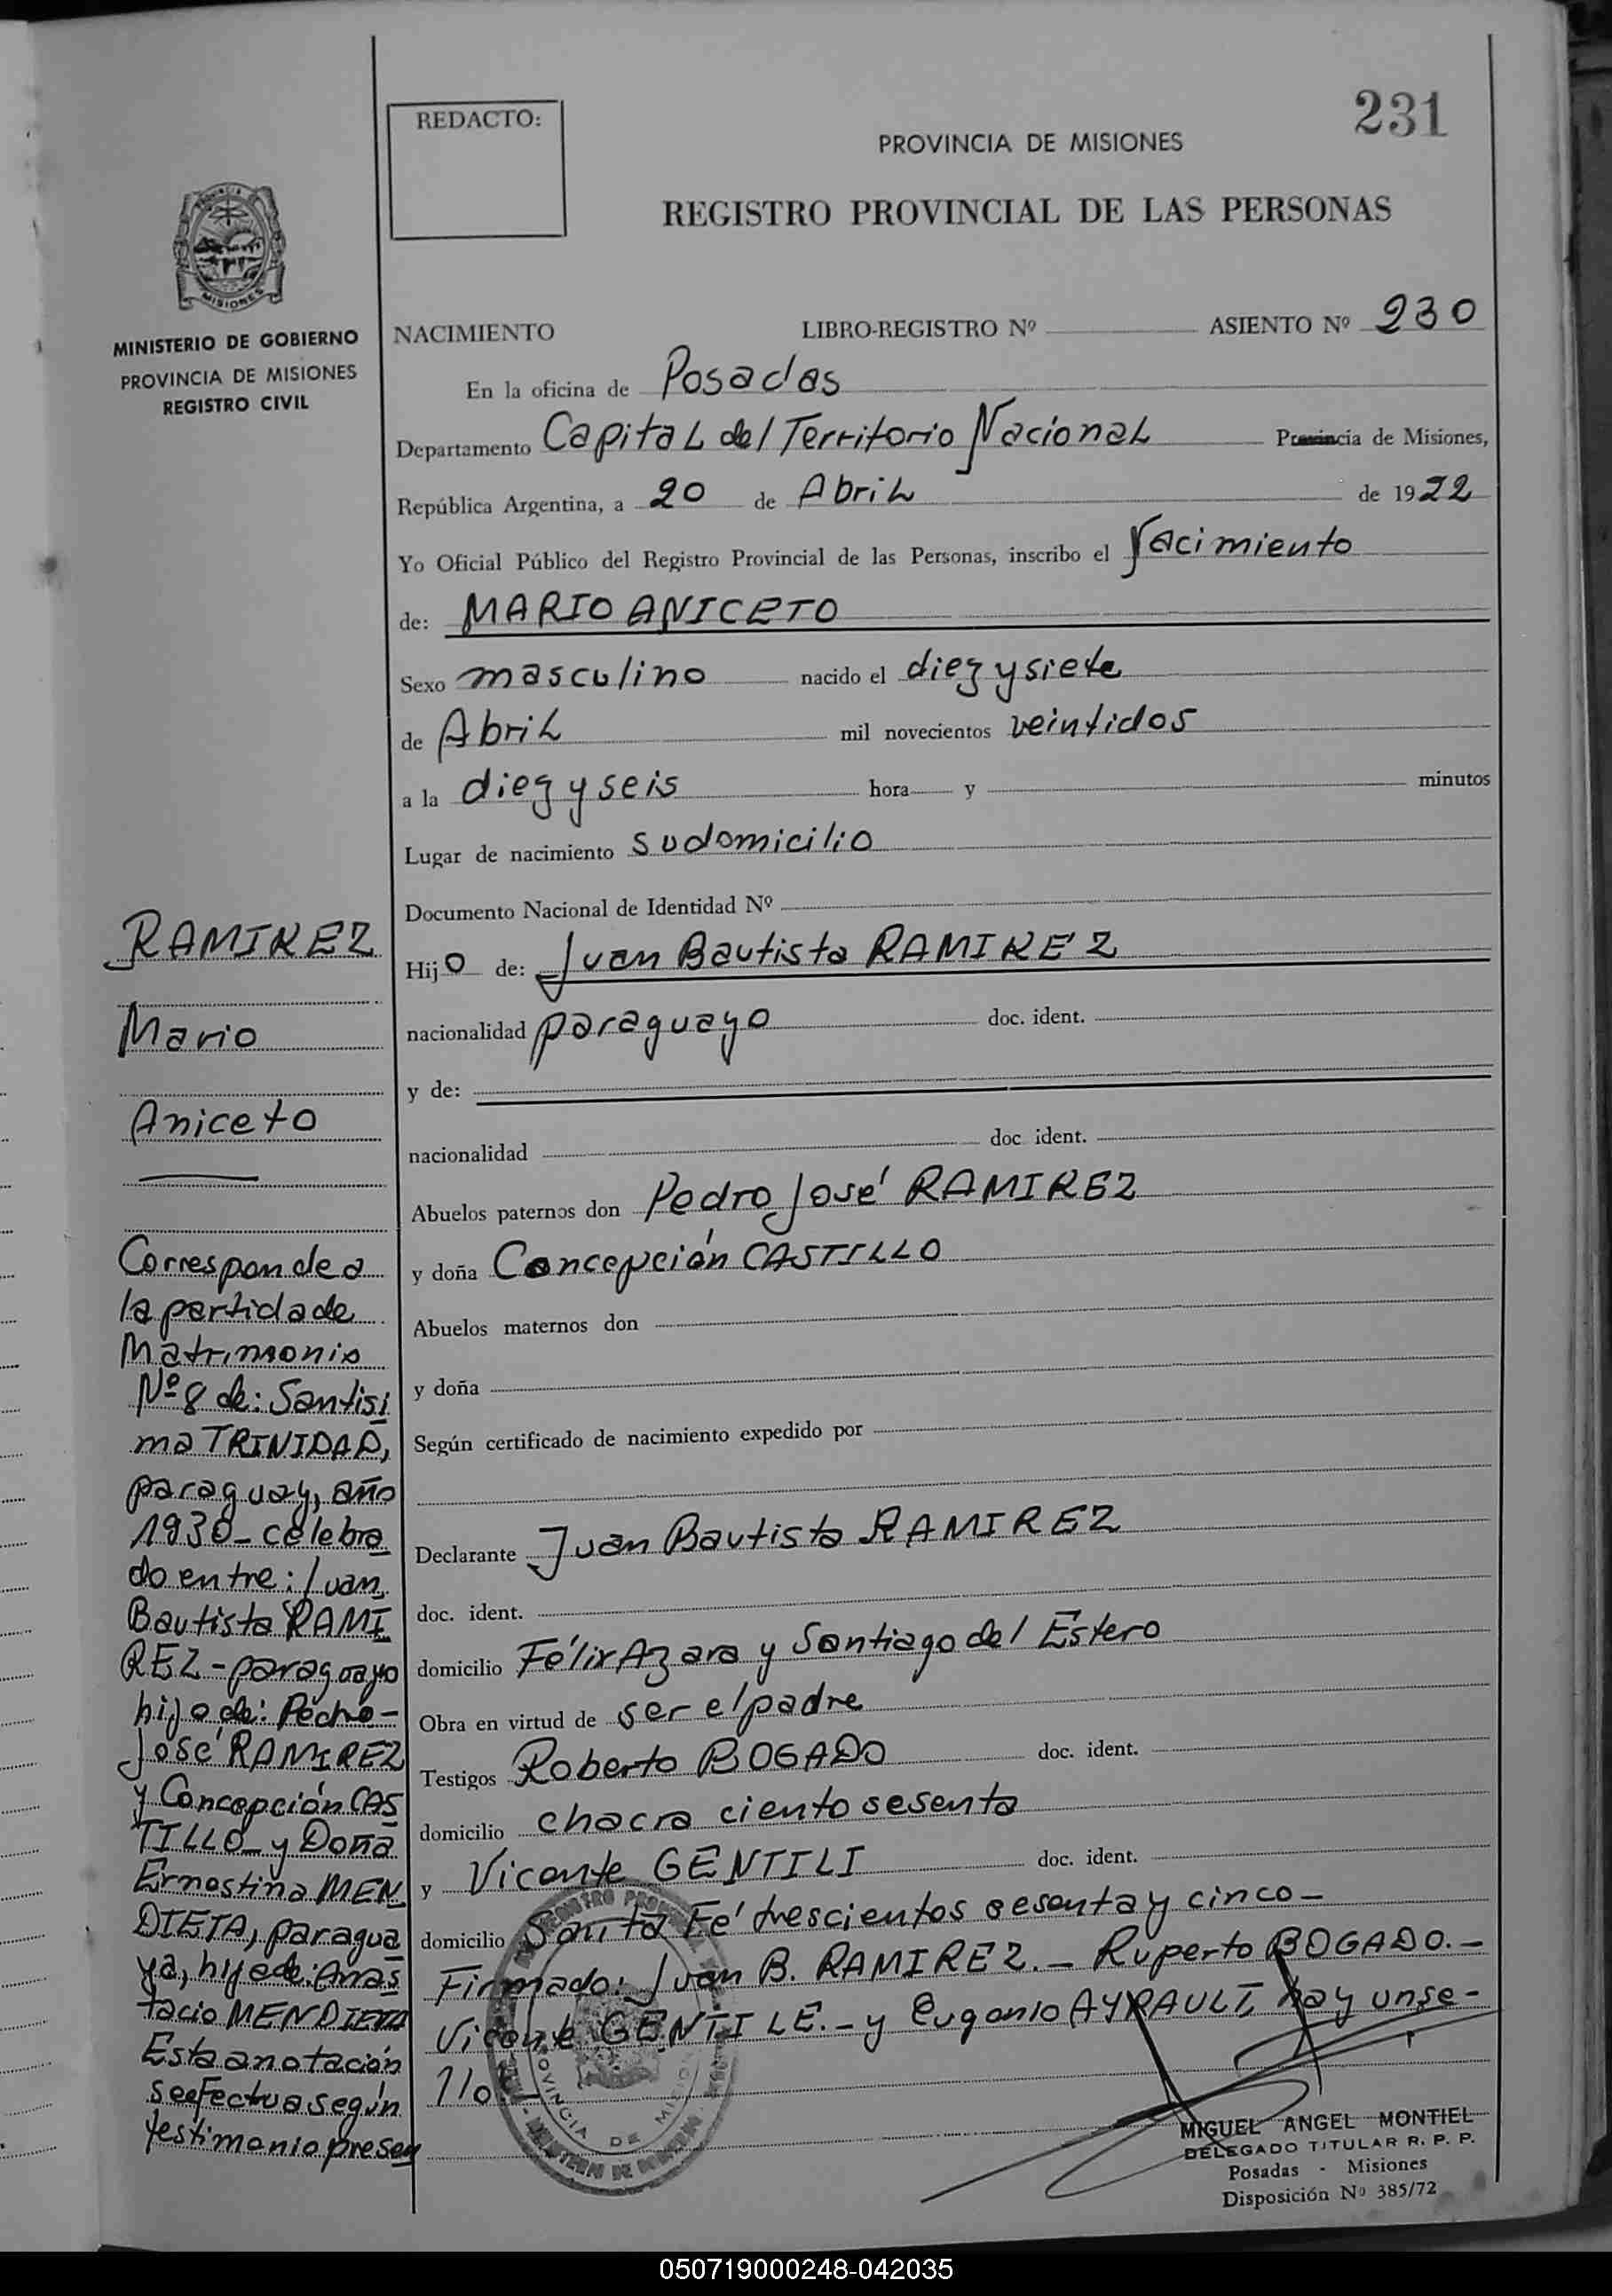 231
REDACTO:
PROVINCIA DE MISIONES
REGISTRO PROVINCIAL DE LAS PERSONAS
MISIONES
MINISTERIO DE GOBIERNO
PROVINCIA DE MISIONES
REGISTRO CIVIL
NACIMIENTO LIBRO-REGISTRO Nº ASIENTO Nº 230
En la oficina de Posadas
Departamento Capital del Territorio Nacional Provincia de Misiones,
República Argentina, a 20 de Abril de 1922
Yo Oficial Público del Registro Provincial de las Personas, inscribo el Nacimiento
de: MARIO ANICETO
Sexo masculino nacido el diez y siete
de Abril mil novecientos veintidos
a la diez y seis hora y minutos
Lugar de nacimiento su domicilio
Documento Nacional de Identidad Nº
Hijo de: Juan Bautista RAMIREZ
nacionalidad paraguayo doc. ident.
y de:
nacionalidad doc ident.
Abuelos paternos don Pedro José RAMIREZ
y doña Concepción CASTILLO
Abuelos maternos don
y doña
Según certificado de nacimiento expedido por
Declarante Juan Bautista RAMIREZ
doc. ident.
domicilio Félix Azara y Santiago del Estero
Obra en virtud de ser el padre
Testigos Roberto BOGADO doc. ident.
domicilio chacra ciento sesenta
y Vicente GENTILI doc. ident.
domicilio Santa Fé trescientos sesenta y cinco-
Firmado: Juan B. RAMIREZ.- Ruperto BOGADO.-
Vicente GENTILE.- y Eugenio AYRAULT, hay un se-
llo
MIGUEL ANGEL MONTIEL
DELEGADO TITULAR R. P. P.
Posadas - Misiones
Disposición Nº 385/72
RAMIREZ
Mario
Aniceto
Corresponde a
la partida de
Matrimonio
Nº 8 de: Santisi
ma TRINIDAD,
paraguay, año
1930- celebra
do entre: Juan
Bautista RAMI
REZ- paraguayo
hijo de: Pedro-
José RAMIREZ
y Concepción CAS
TILLO- y Doña
Ernestina MEN
DIETA, paragua
ya, hija de: Anas
tacio MENDIETA
Esta anotación
se efectua según
testimonio presen
050719000248-042035